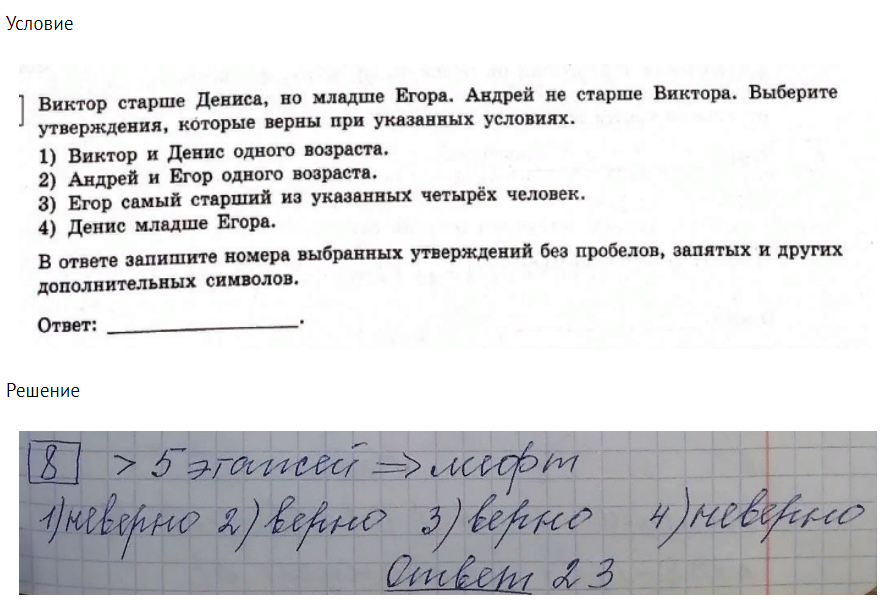 Условие
Виктор старше Дениса, но младше Егора. Андрей не старше Виктора. Выберите
утверждения, которые верны при указанных условиях.
1) Виктор и Денис одного возраста.
2) Андрей и Егор одного возраста.
3) Егор самый старший из указанных четырёх человек.
4) Денис младше Егора.
В ответе запишите номера выбранных утверждений без пробелов, запятых и других
дополнительных символов.
Ответ: ____________________.
Решение
8 > 5 этажей => лифт
1) неверно 2) верно 3) верно 4) неверно
Ответ 23